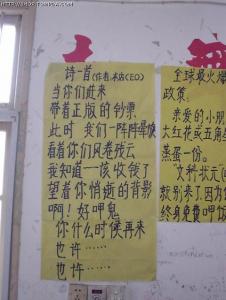 诗一首(作者:本店CEO)
当你们进来
带着正版的钞票
此时 我们一阵阵晕恢
看着你们风卷残云
我知道一该收钱了
望着你悄逝的背影
啊！好呷鬼
你什么时侯再来
也许……
也许……
全球最火
政策:
亲爱的小朋
大红花或五角星
蒸蛋一份。
"文科状元(
就别来了.因为
终身免费呷饭